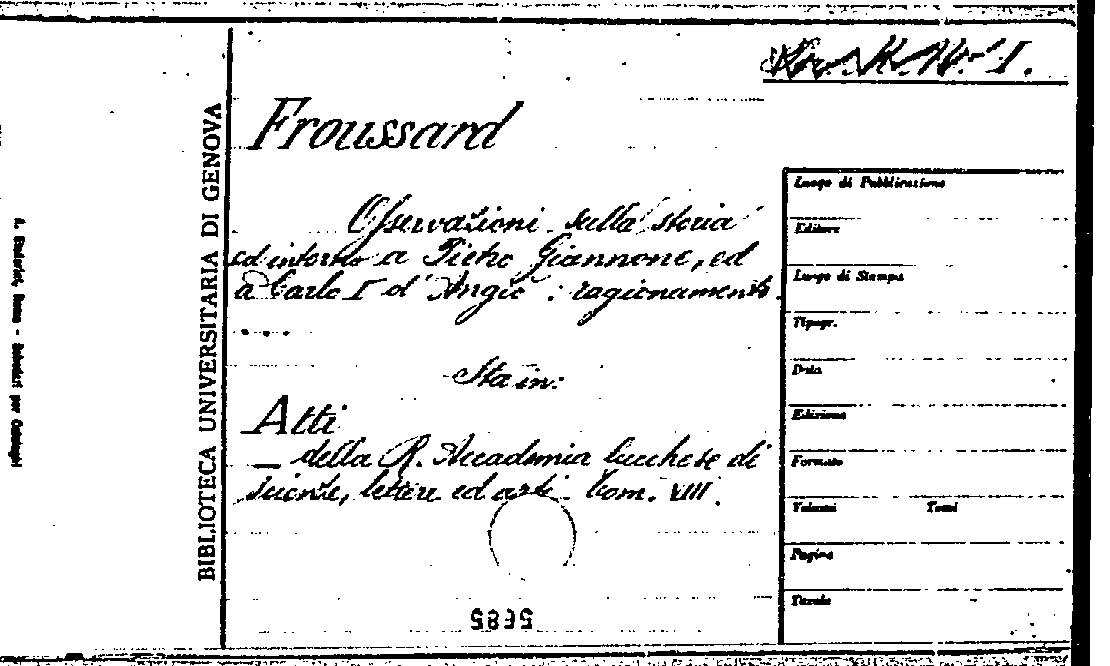 Froussard
Osservazioni sulla storia
ed intorno a Pietro Giannone, ed
a Carlo I d'Angiò: ragionamento.
....
Sta in:
Atti
— della R. Accademia lucchese di
scienze, lettere ed arti. Tom. VIII.
BIBLIOTECA UNIVERSITARIA DI GENOVA
Luogo di Pubblicazione
Editore
Luogo di Stampa
Tipogr.
Data
Edizione
Formato
Volumi Tomi
Pagine
Tavole
Roma - Schedari per Cataloghi